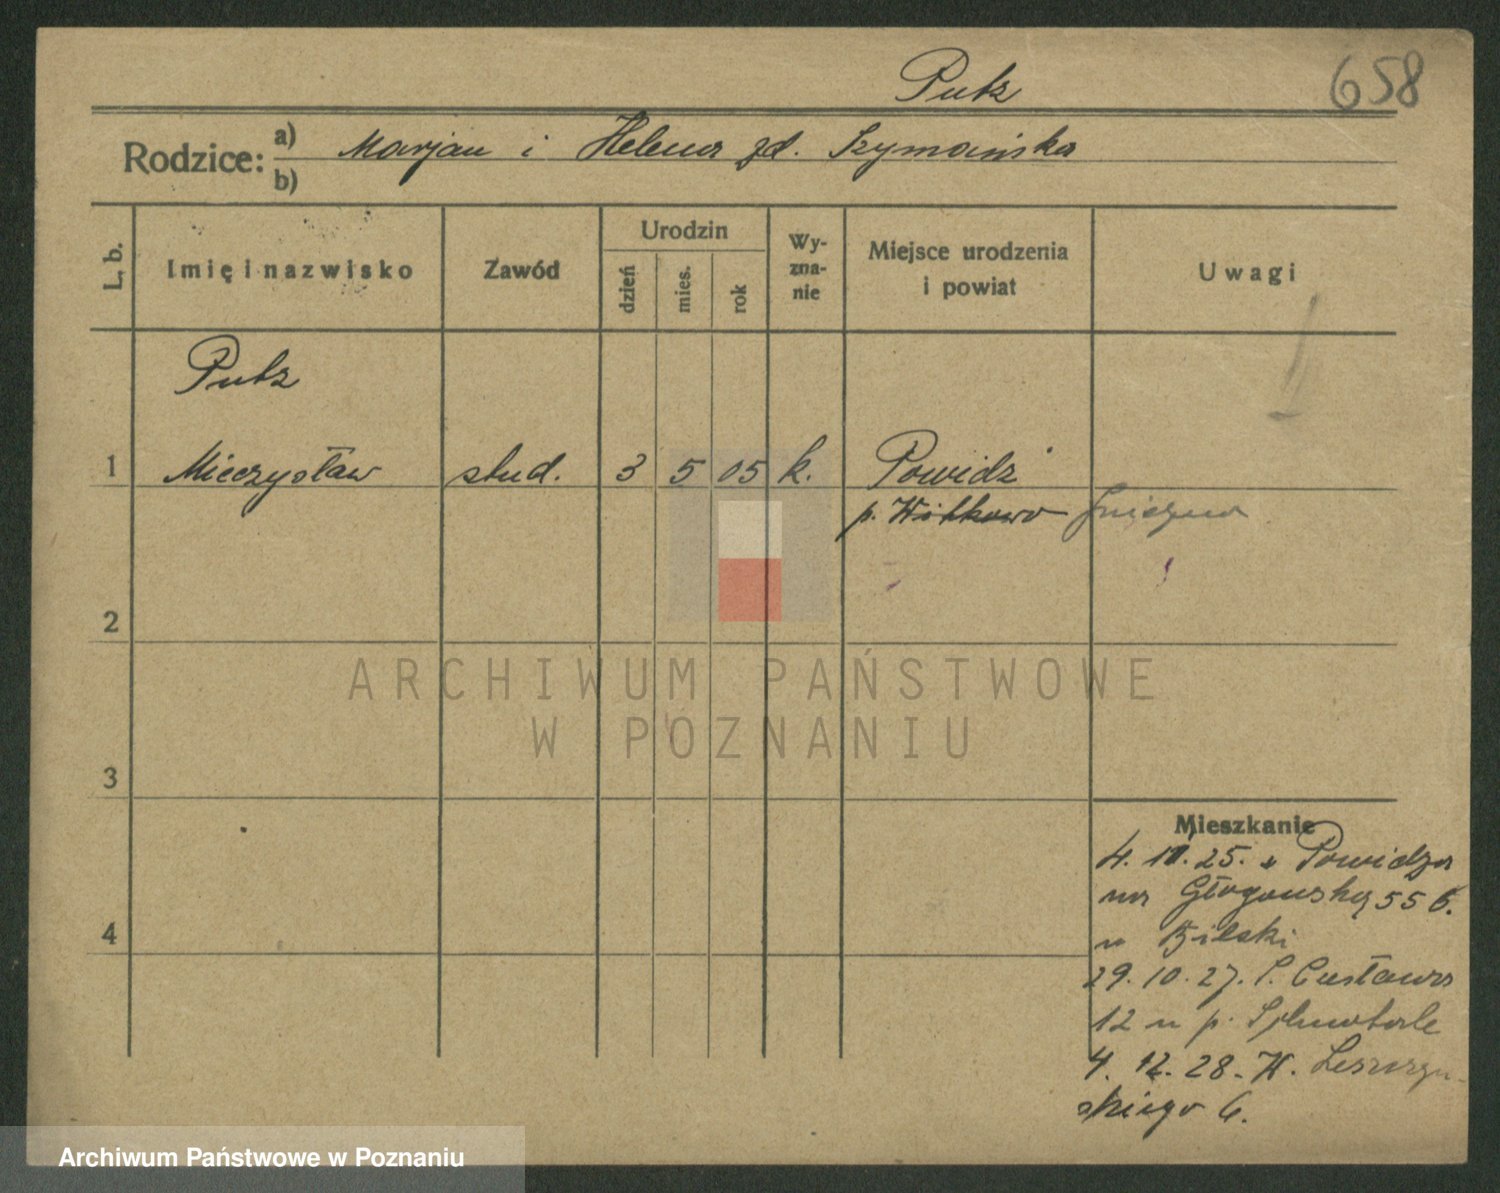 Putz
658
Rodzice: a) Marjan i Helena zd. Szymańska
b)
L. b.
Imię i nazwisko
Zawód
Urodzin
dzień
mies.
rok
Wy-
zna-
nie
Miejsce urodzenia
i powiat
Uwagi
Putz
1 Mieczysław stud. 3 5 05 k. Powidz
p. Witkowo Gniezno
2
ARCHIWUM PAŃSTWOWE
W POZNANIU
3
Mieszkanie
4. 11. 25. z Powidza
na Głogowską 55 6.
u Bilski
4
29. 10. 27. S. Czesława
12 u p.
4. 12. 28. W. Leszczyń-
skiego 6.
Archiwum Państwowe w Poznaniu